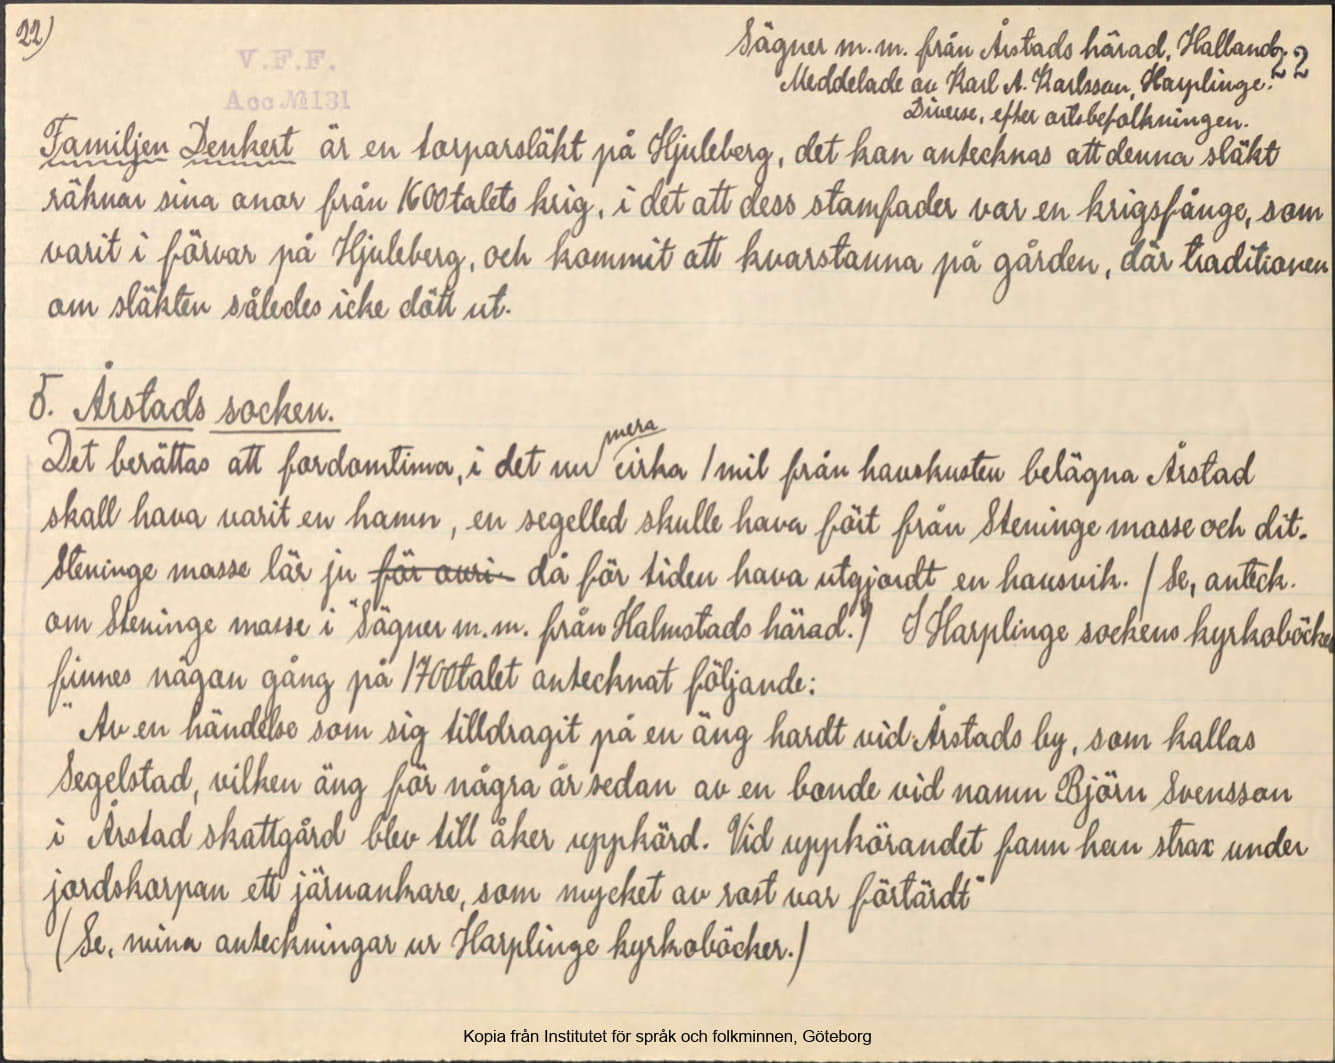 22)
Sägner m.m. från Årstads härad, Halland.
22
V.F.F.
Acc № 131
Meddelade av Karl A. Karlsson, Harplinge.
Diverse, efter ortsbefolkningen.
Familjen Denkert är en torparsläkt på Hjuleberg, det kan antecknas att denna släkt
räknar sina anor från 1600talets krig, i det att dess stamfader var en krigsfånge, som
varit i förvar på Hjuleberg, och kommit att kvarstanna på gården, där traditionen
om släkten således icke dött ut.
5. Årstads socken.
mera
Det berättas att fordomtima, i det nu cirka 1 mil från havskusten belägna Årstad
skall hava varit en hamn, en segelled skulle hava fört från Steninge mosse och dit.
Steninge mosse lär ju för då för tiden hava utgjordt en havsvik. (Se, anteck.
om Steninge mosse i "Sägner m.m. från Halmstads härad.") I Harplinge sockens kyrkoböcker
finnes någon gång på 1700talet antecknat följande:
"Av en händelse som sig tilldragit på en äng hardt vid Årstads by, som kallas
Segelstad, vilken äng för några år sedan av en bonde vid namn Björn Svensson
i Årstad skattgård blev till åker uppkörd. Vid uppkörandet fann han strax under
jordskorpan ett järnankare, som mycket av rost var förtärdt"
(Se, mina anteckningar ur Harplinge kyrkoböcker.)
Kopia från Institutet för språk och folkminnen, Göteborg